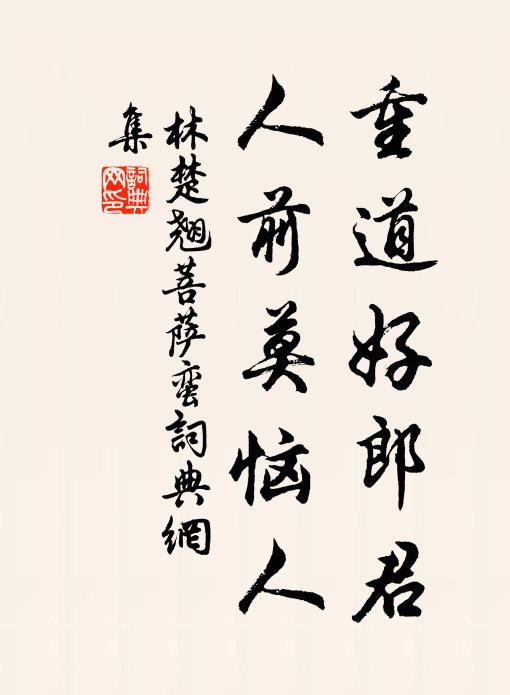 重道好郎君
人前莫恼人
林楚翘菩萨蛮詞典網
集
詞典
网印